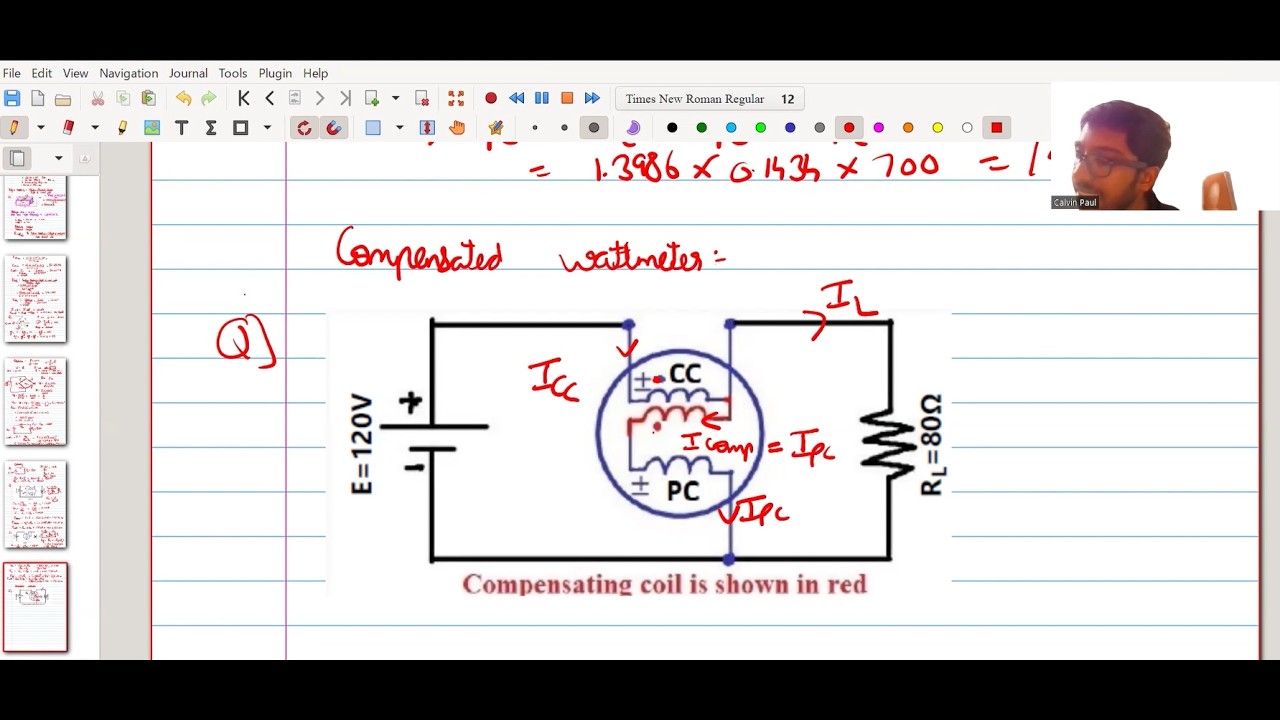 File Edit View Navigation Journal Tools Plugin Help
Times New Roman Regular 12
Calvin Paul
= 1.3986 × 0.1434 × 700 =
Compensated wattmeter :-
Q]
I_L
I_CC
± CC
I_comp = I_PC
± PC
I_PC
+
-
E=120V
R_L=80Ω
Compensating coil is shown in red